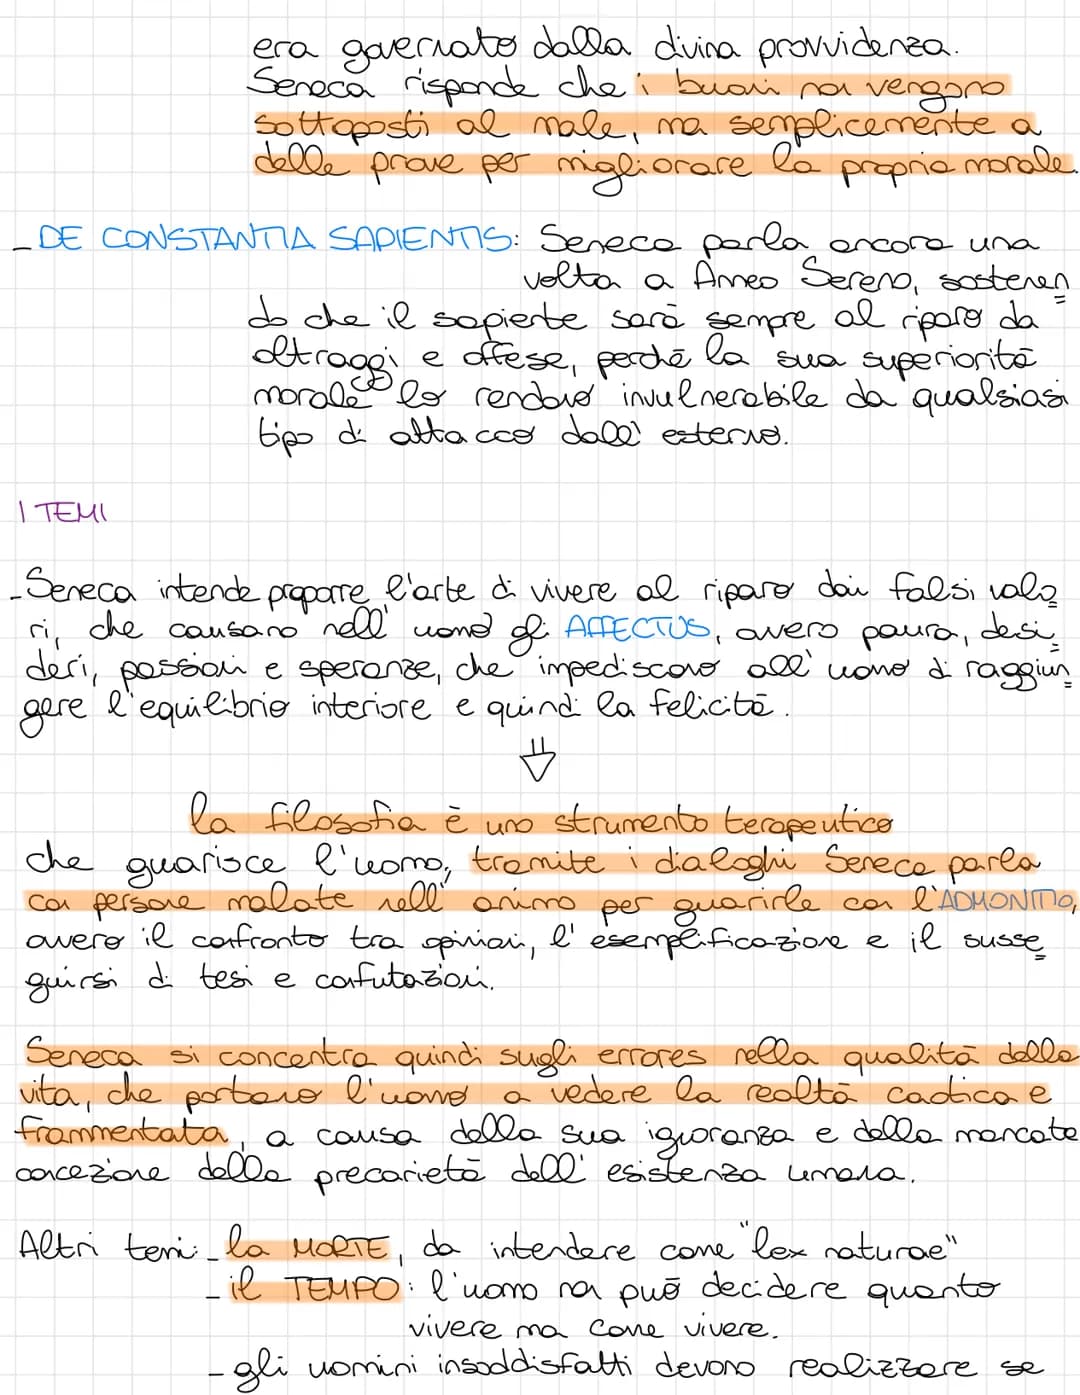 era governato dalla divina provvidenza.
Seneca risponde che i buoni non vengono
sottoposti al male, ma semplicemente a
delle prove per migliorare la propria morale.
- DE CONSTANTIA SAPIENTIS: Seneca parla ancora una
volta a Anneo Sereno, sostenen
do che il sapiente sarà sempre al riparo da
oltraggi e offese, perché la sua superiorità
morale lo rendono invulnerabile da qualsiasi
tipo di attacco dall' esterno.
I TEMI
- Seneca intende proporre l'arte di vivere al riparo dai falsi valo
ri, che causano nell' uomo gli AFFECTUS, ovvero paura, desi
deri, passioni e speranze, che impediscono all' uomo di raggiun
gere l'equilibrio interiore e quindi la felicità.
la filosofia è uno strumento terapeutico
che guarisce l'uomo, tramite i dialoghi Seneca parla
con persone malate nell' animo per guarirle con l'ADMONITIO,
ovvero il confronto tra opinioni, l' esemplificazione e il susse
guirsi di tesi e confutazioni.
Seneca si concentra quindi sugli errores nella qualità della
vita, che portano l'uomo a vedere la realtà caotica e
frammentata, a causa della sua ignoranza e della mancata
concezione della precarietà dell' esistenza umana.
Altri temi: - la MORTE, da intendere come "lex naturae"
- il TEMPO: l'uomo non può decidere quanto
vivere ma come vivere.
- gli uomini insoddisfatti devono realizzare se